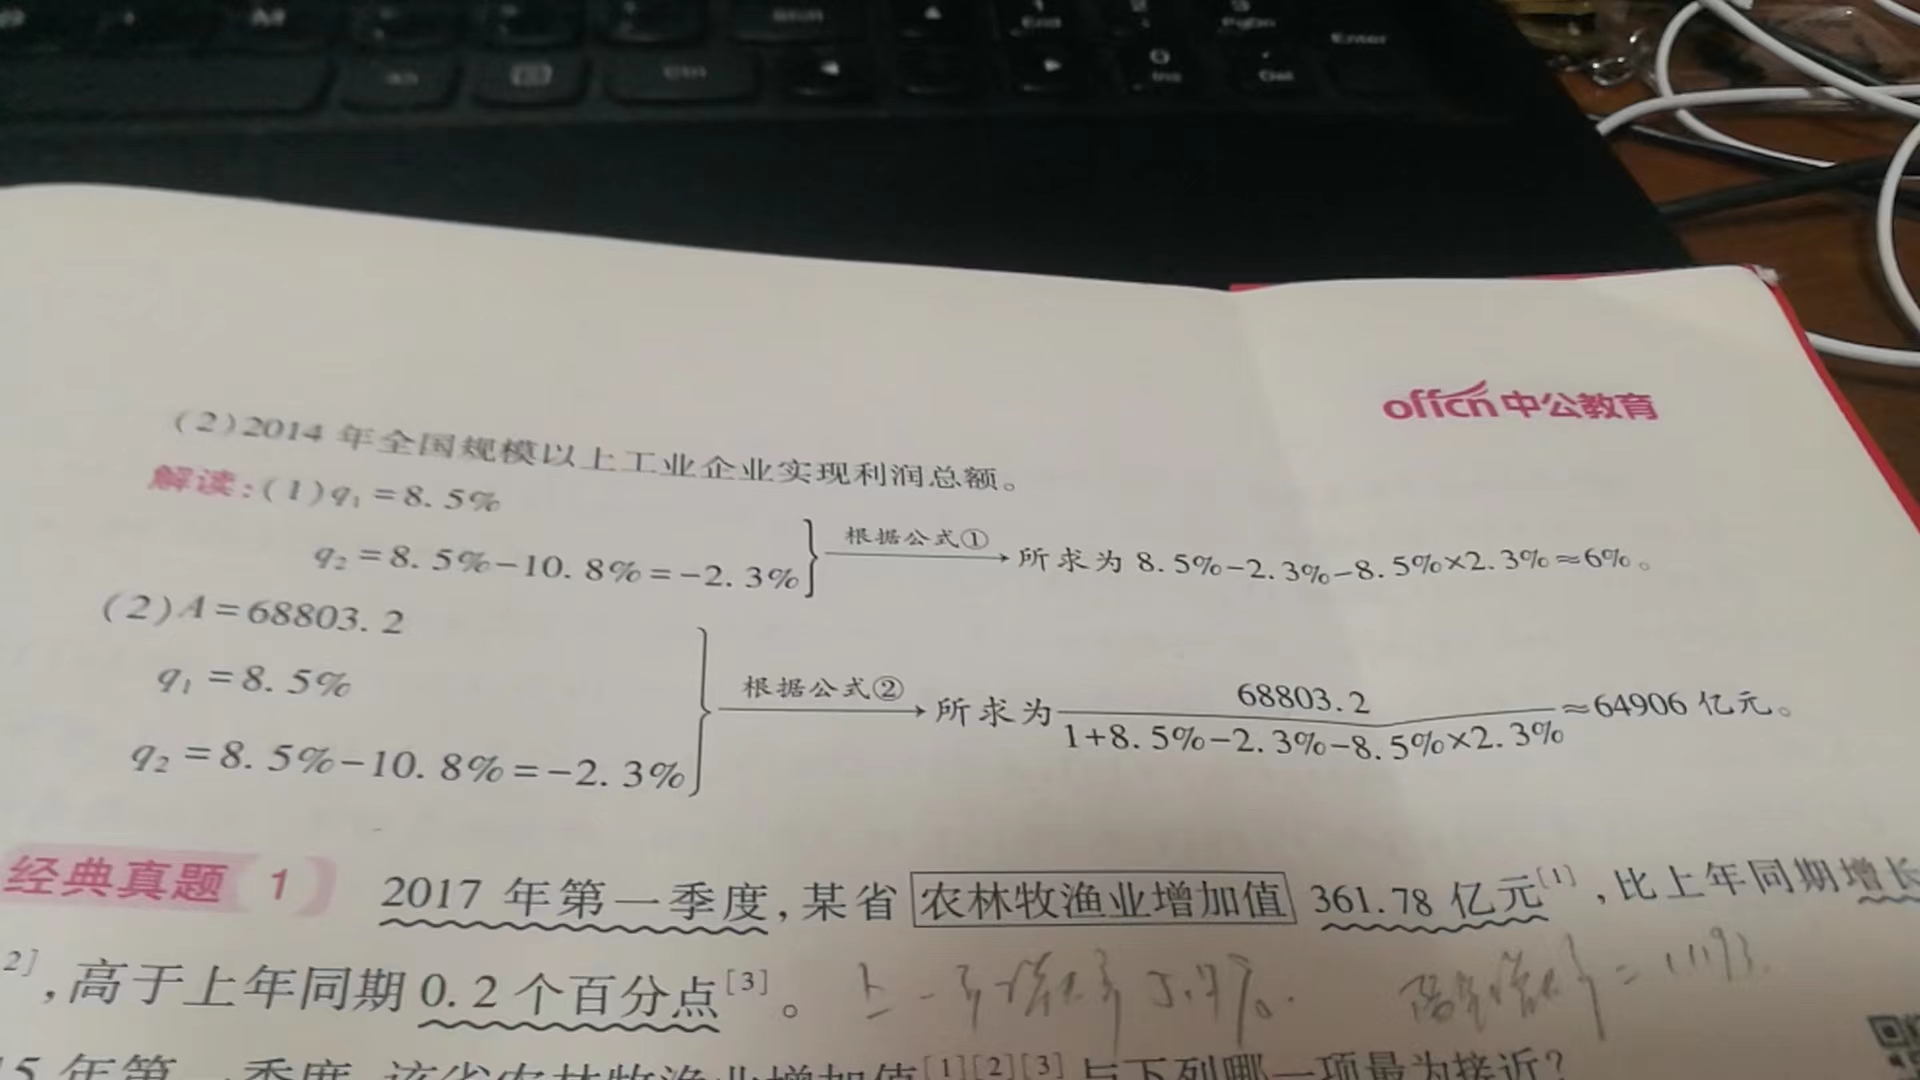 End
PgDn
Enter
Ctrl
Ins
Del
offcn中公教育
(2)2014年全国规模以上工业企业实现利润总额。
解读:(1)q₁=8.5%
q₂=8.5%-10.8%=-2.3%
根据公式①
所求为 8.5%-2.3%-8.5%×2.3%≈6%。
(2)A=68803.2
q₁=8.5%
q₂=8.5%-10.8%=-2.3%
根据公式②
所求为
68803.2
1+8.5%-2.3%-8.5%×2.3%
≈64906亿元。
经典真题 1 2017年第一季度,某省农林牧渔业增加值361.78亿元[1],比上年同期增长
2],高于上年同期0.2个百分点[3]。
5年第一季度,该省农林牧渔业增加值[1][2][3]与下列哪一项最为接近?